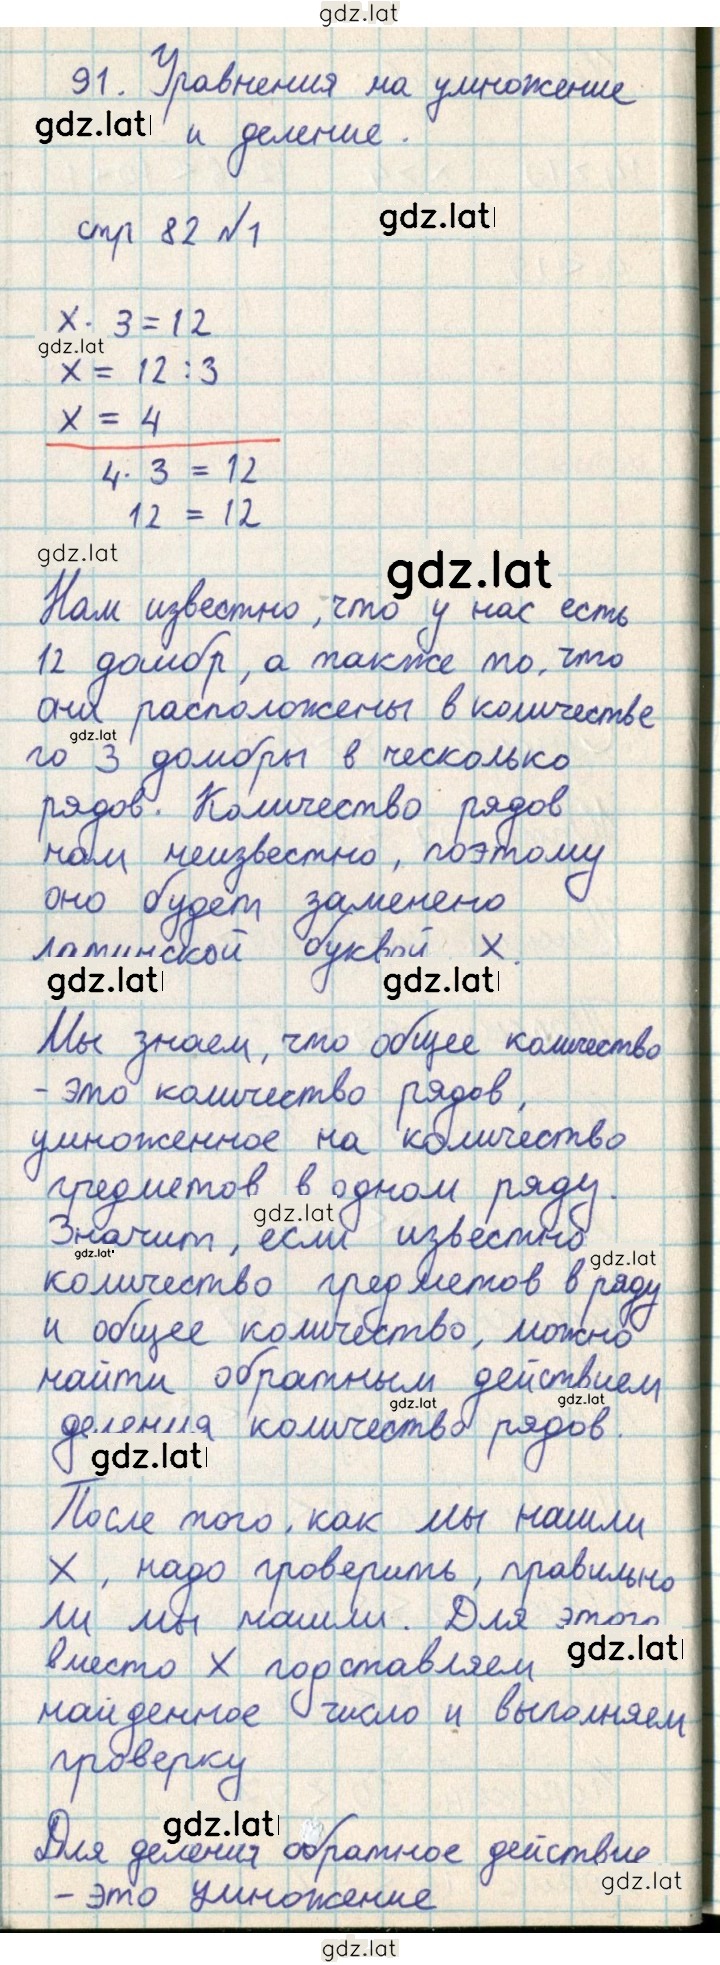 gdz.lat
91. Уравнения на умножение
gdz.lat и деление.
gdz.lat
стр 82 №1
x · 3 = 12
gdz.lat
x = 12 : 3
x = 4
4 · 3 = 12
12 = 12
gdz.lat
gdz.lat
Нам известно, что у нас есть
12 домбр, а также то, что
они расположены в количестве
gdz.lat
по 3 домбры в несколько
рядов. Количество рядов
нам неизвестно, поэтому
оно будет заменено
латинской буквой X.
gdz.lat gdz.lat
Мы знаем, что общее количество
- это количество рядов,
умноженное на количество
предметов в одном ряду.
gdz.lat
Значит, если известно
gdz.lat gdz.lat
количество предметов в ряду
и общее количество, можно
найти обратным действием
gdz.lat gdz.lat
деления количество рядов.
gdz.lat
После того, как мы нашли
X, надо проверить, правильно
ли мы нашли. Для этого
gdz.lat
вместо X подставляем
найденное число и выполняем
проверку
gdz.lat
Для деления обратное действие
gdz.lat
- это умножение
gdz.lat